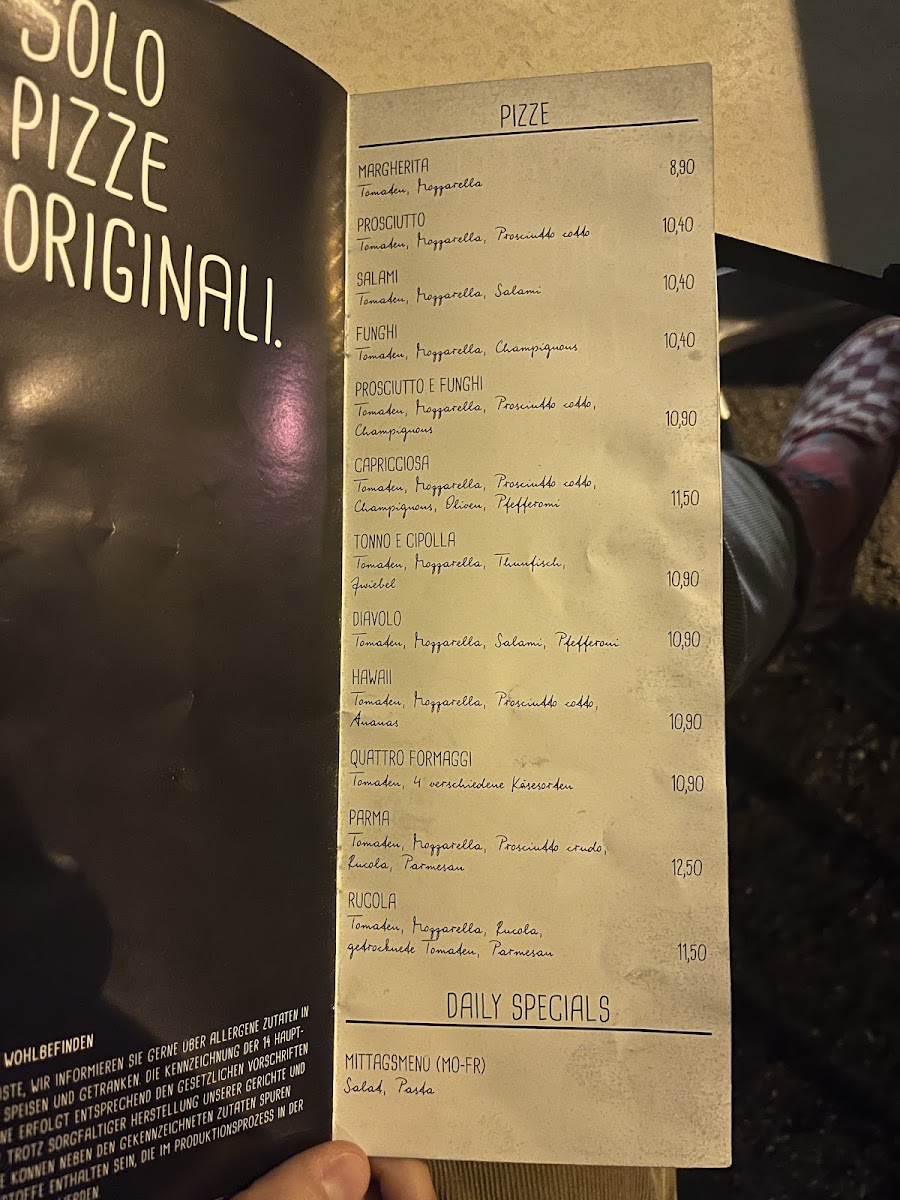 SOLO
PIZZE
ORIGINALI.
WOHLBEFINDEN
WIR INFORMIEREN SIE GERNE ÜBER ALLERGENE ZUTATEN IN
SPEISEN UND GETRÄNKEN. DIE KENNZEICHNUNG DER 14 HAUPT-
ERFOLGT ENTSPRECHEND DEN GESETZLICHEN VORSCHRIFTEN
TROTZ SORGFÄLTIGER HERSTELLUNG UNSERER GERICHTE UND
KÖNNEN NEBEN DEN GEKENNZEICHNETEN ZUTATEN SPUREN
ENTHALTEN SEIN, DIE IM PRODUKTIONSPROZESS IN DER
PIZZE
MARGHERITA 8,90
Tomaten, Mozzarella
PROSCIUTTO 10,40
Tomaten, Mozzarella, Prosciutto cotto
SALAMI 10,40
Tomaten, Mozzarella, Salami
FUNGHI 10,40
Tomaten, Mozzarella, Champignons
PROSCIUTTO E FUNGHI
Tomaten, Mozzarella, Prosciutto cotto,
Champignons 10,90
CAPRICCIOSA
Tomaten, Mozzarella, Prosciutto cotto,
Champignons, Oliven, Pfefferoni 11,50
TONNO E CIPOLLA
Tomaten, Mozzarella, Thunfisch,
Zwiebel 10,90
DIAVOLO
Tomaten, Mozzarella, Salami, Pfefferoni 10,90
HAWAII
Tomaten, Mozzarella, Prosciutto cotto,
Ananas 10,90
QUATTRO FORMAGGI
Tomaten, 4 verschiedene Käsesorten 10,90
PARMA
Tomaten, Mozzarella, Prosciutto crudo,
Rucola, Parmesan 12,50
RUCOLA
Tomaten, Mozzarella, Rucola,
getrocknete Tomaten, Parmesan 11,50
DAILY SPECIALS
MITTAGSMENÜ (MO-FR)
Salat, Pasta